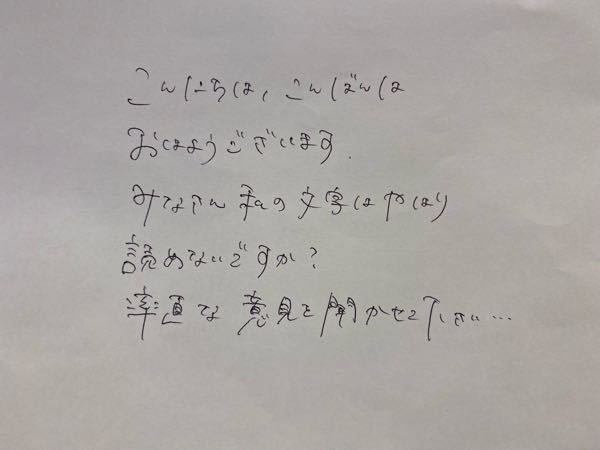 こんにちは、こんばんは
おはようございます.
みなさん私の文字はやはり
読めないですか?
率直な意見を聞かせて下さい…